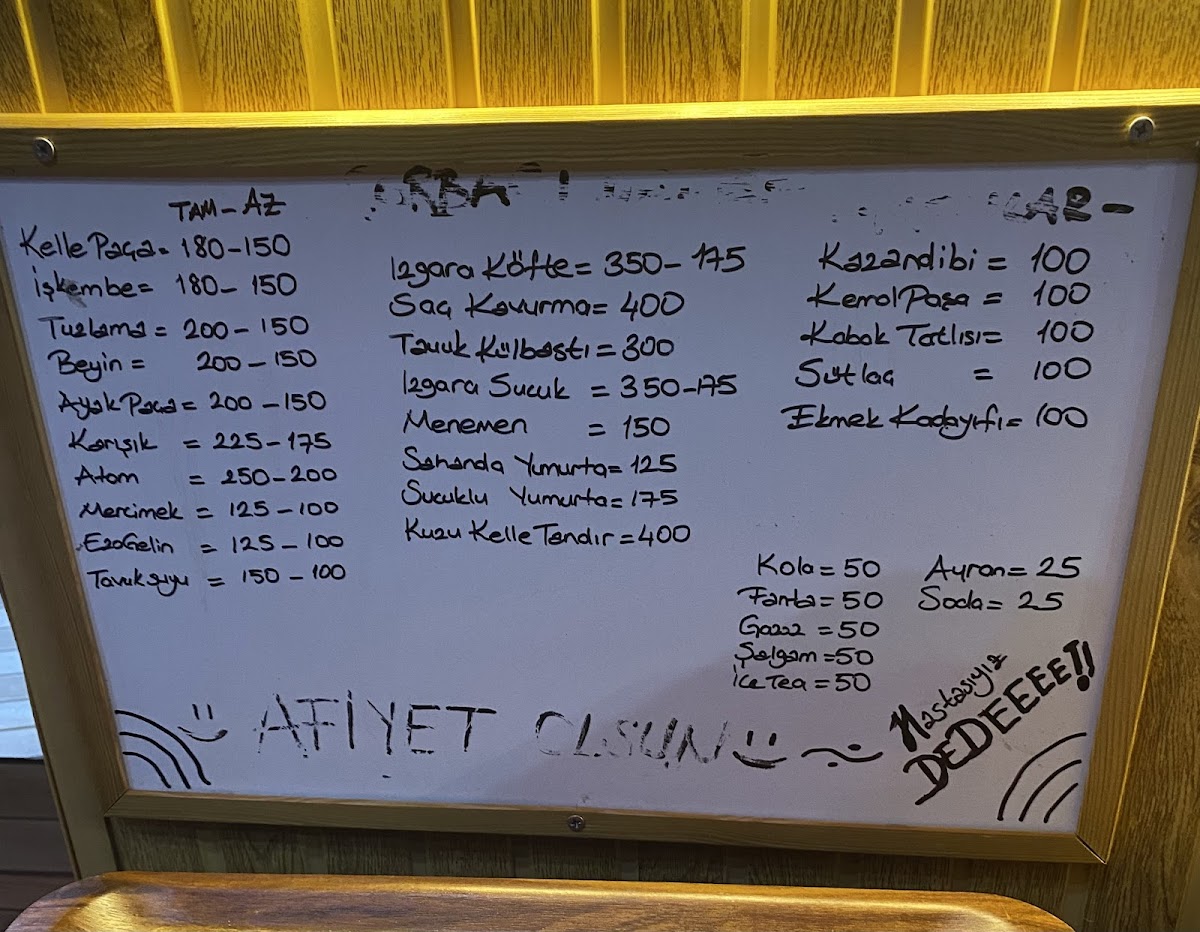 TAM - AZ
Kelle Paça = 180 - 150
İşkembe = 180 - 150
Tuzlama = 200 - 150
Beyin = 200 - 150
Ayak Paça = 200 - 150
Karışık = 225 - 175
Atom = 250 - 200
Mercimek = 125 - 100
EzoGelin = 125 - 100
Tavuk suyu = 150 - 100
Izgara Köfte = 350 - 175
Saç Kavurma = 400
Tavuk Külbastı = 300
Izgara Sucuk = 350 - 175
Menemen = 150
Sahanda Yumurta = 125
Sucuklu Yumurta = 175
Kuzu Kelle Tandır = 400
Kazandibi = 100
Kemal Paşa = 100
Kabak Tatlısı = 100
Sütlaç = 100
Ekmek Kadayıfı = 100
Kola = 50
Fanta = 50
Gazoz = 50
Şalgam = 50
İce Tea = 50
Ayran = 25
Soda = 25
AFİYET OLSUN
Hastasıyız
DEDEEEE!!